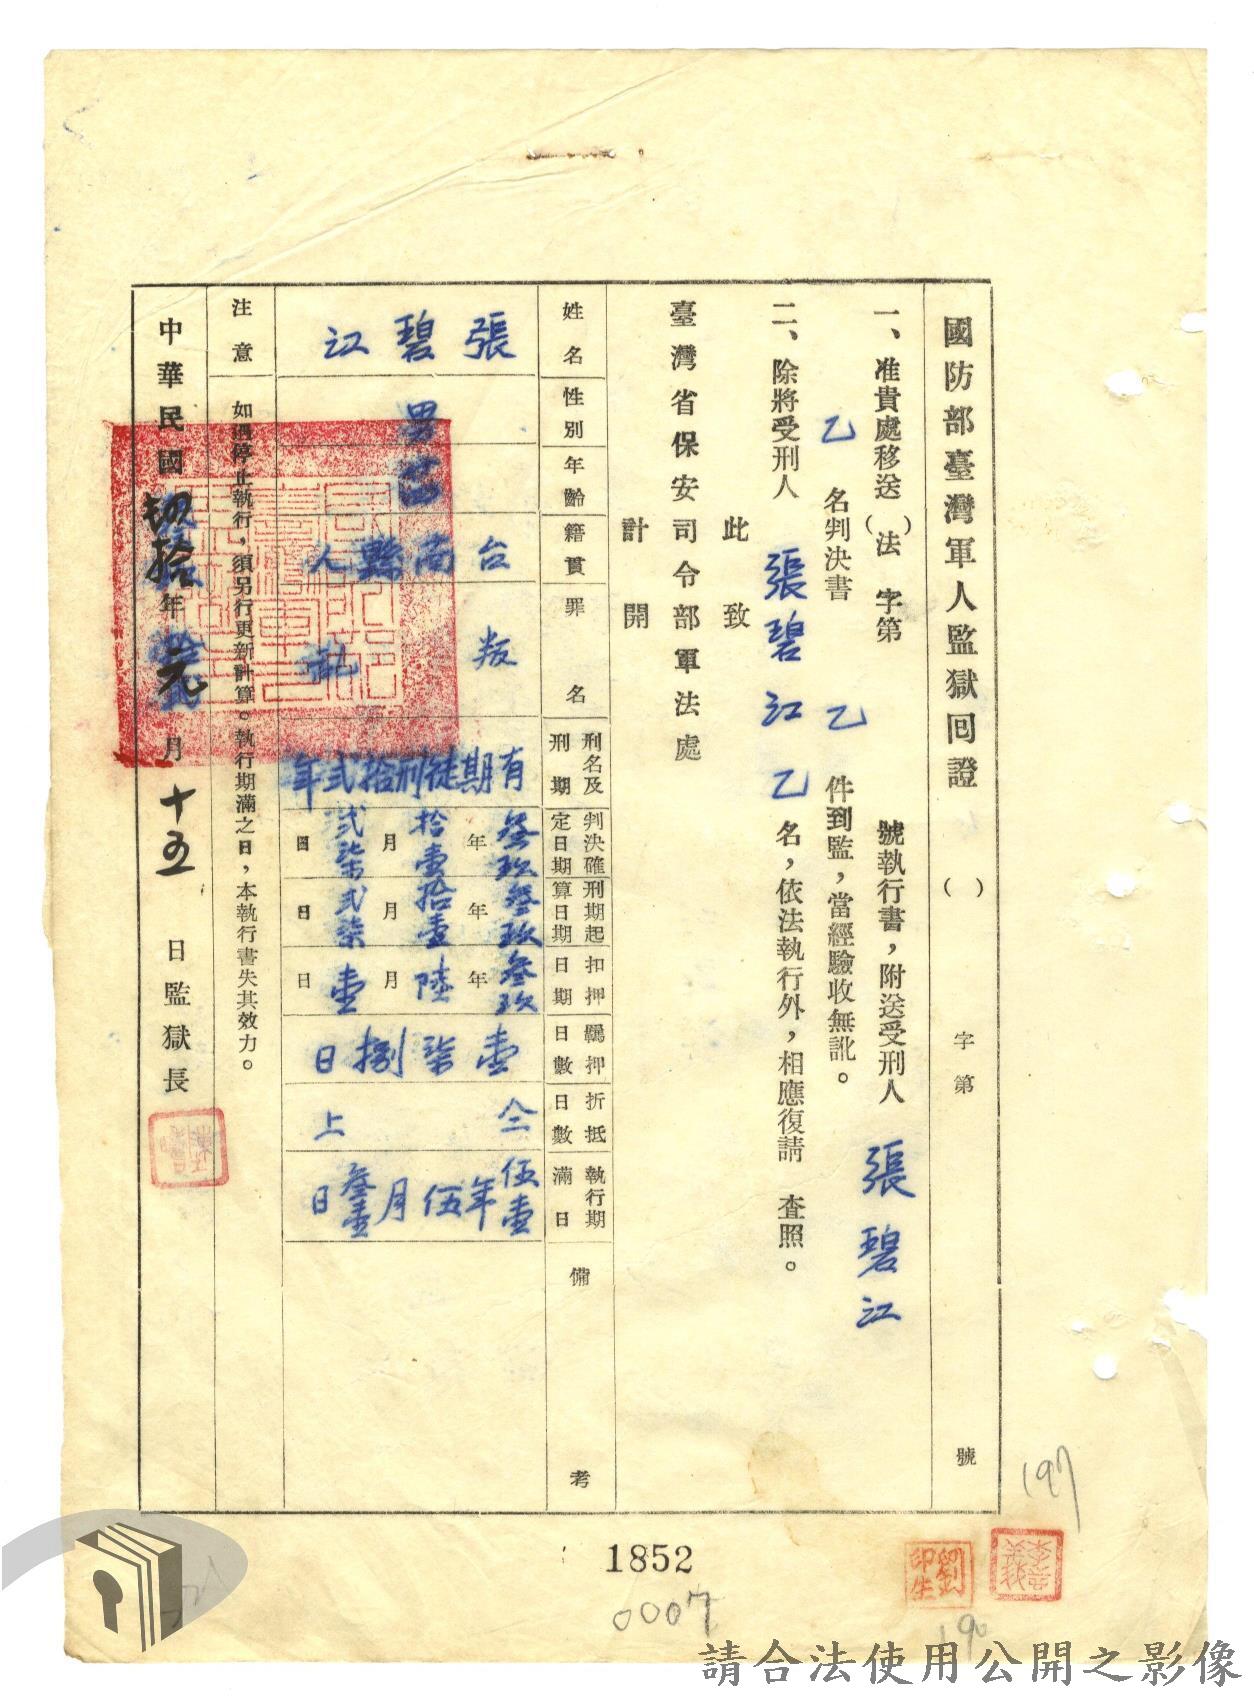 國防部臺灣軍人監獄回證 ( ) 字第 號
一、准貴處移送( )法 字第 號執行書，附送受刑人 張碧江
乙 名判決書 乙 件到監，當經驗收無訛。
二、除將受刑人 張碧江 乙 名，依法執行外，相應復請 查照。
此致
臺灣省保安司令部軍法處
計開
姓名 張碧江
性別 男
年齡
籍貫 台南縣人
罪名 叛亂
刑名及刑期 有期徒刑拾弍年
判決確定日期 叁玖年拾壹月弍柒日
刑期起算日期 叁玖年拾壹月弍柒日
扣押日期 叁玖年陸月壹日
羈押日數 壹柒捌日
折抵日數 仝上
執行期滿日 伍壹年伍月叁壹日
備考
注意 如遇停止執行，須另行更新計算。執行期滿之日，本執行書失其效力。
中華民國肆拾年元月十五日監獄長
197
1852
0007
190
請合法使用公開之影像